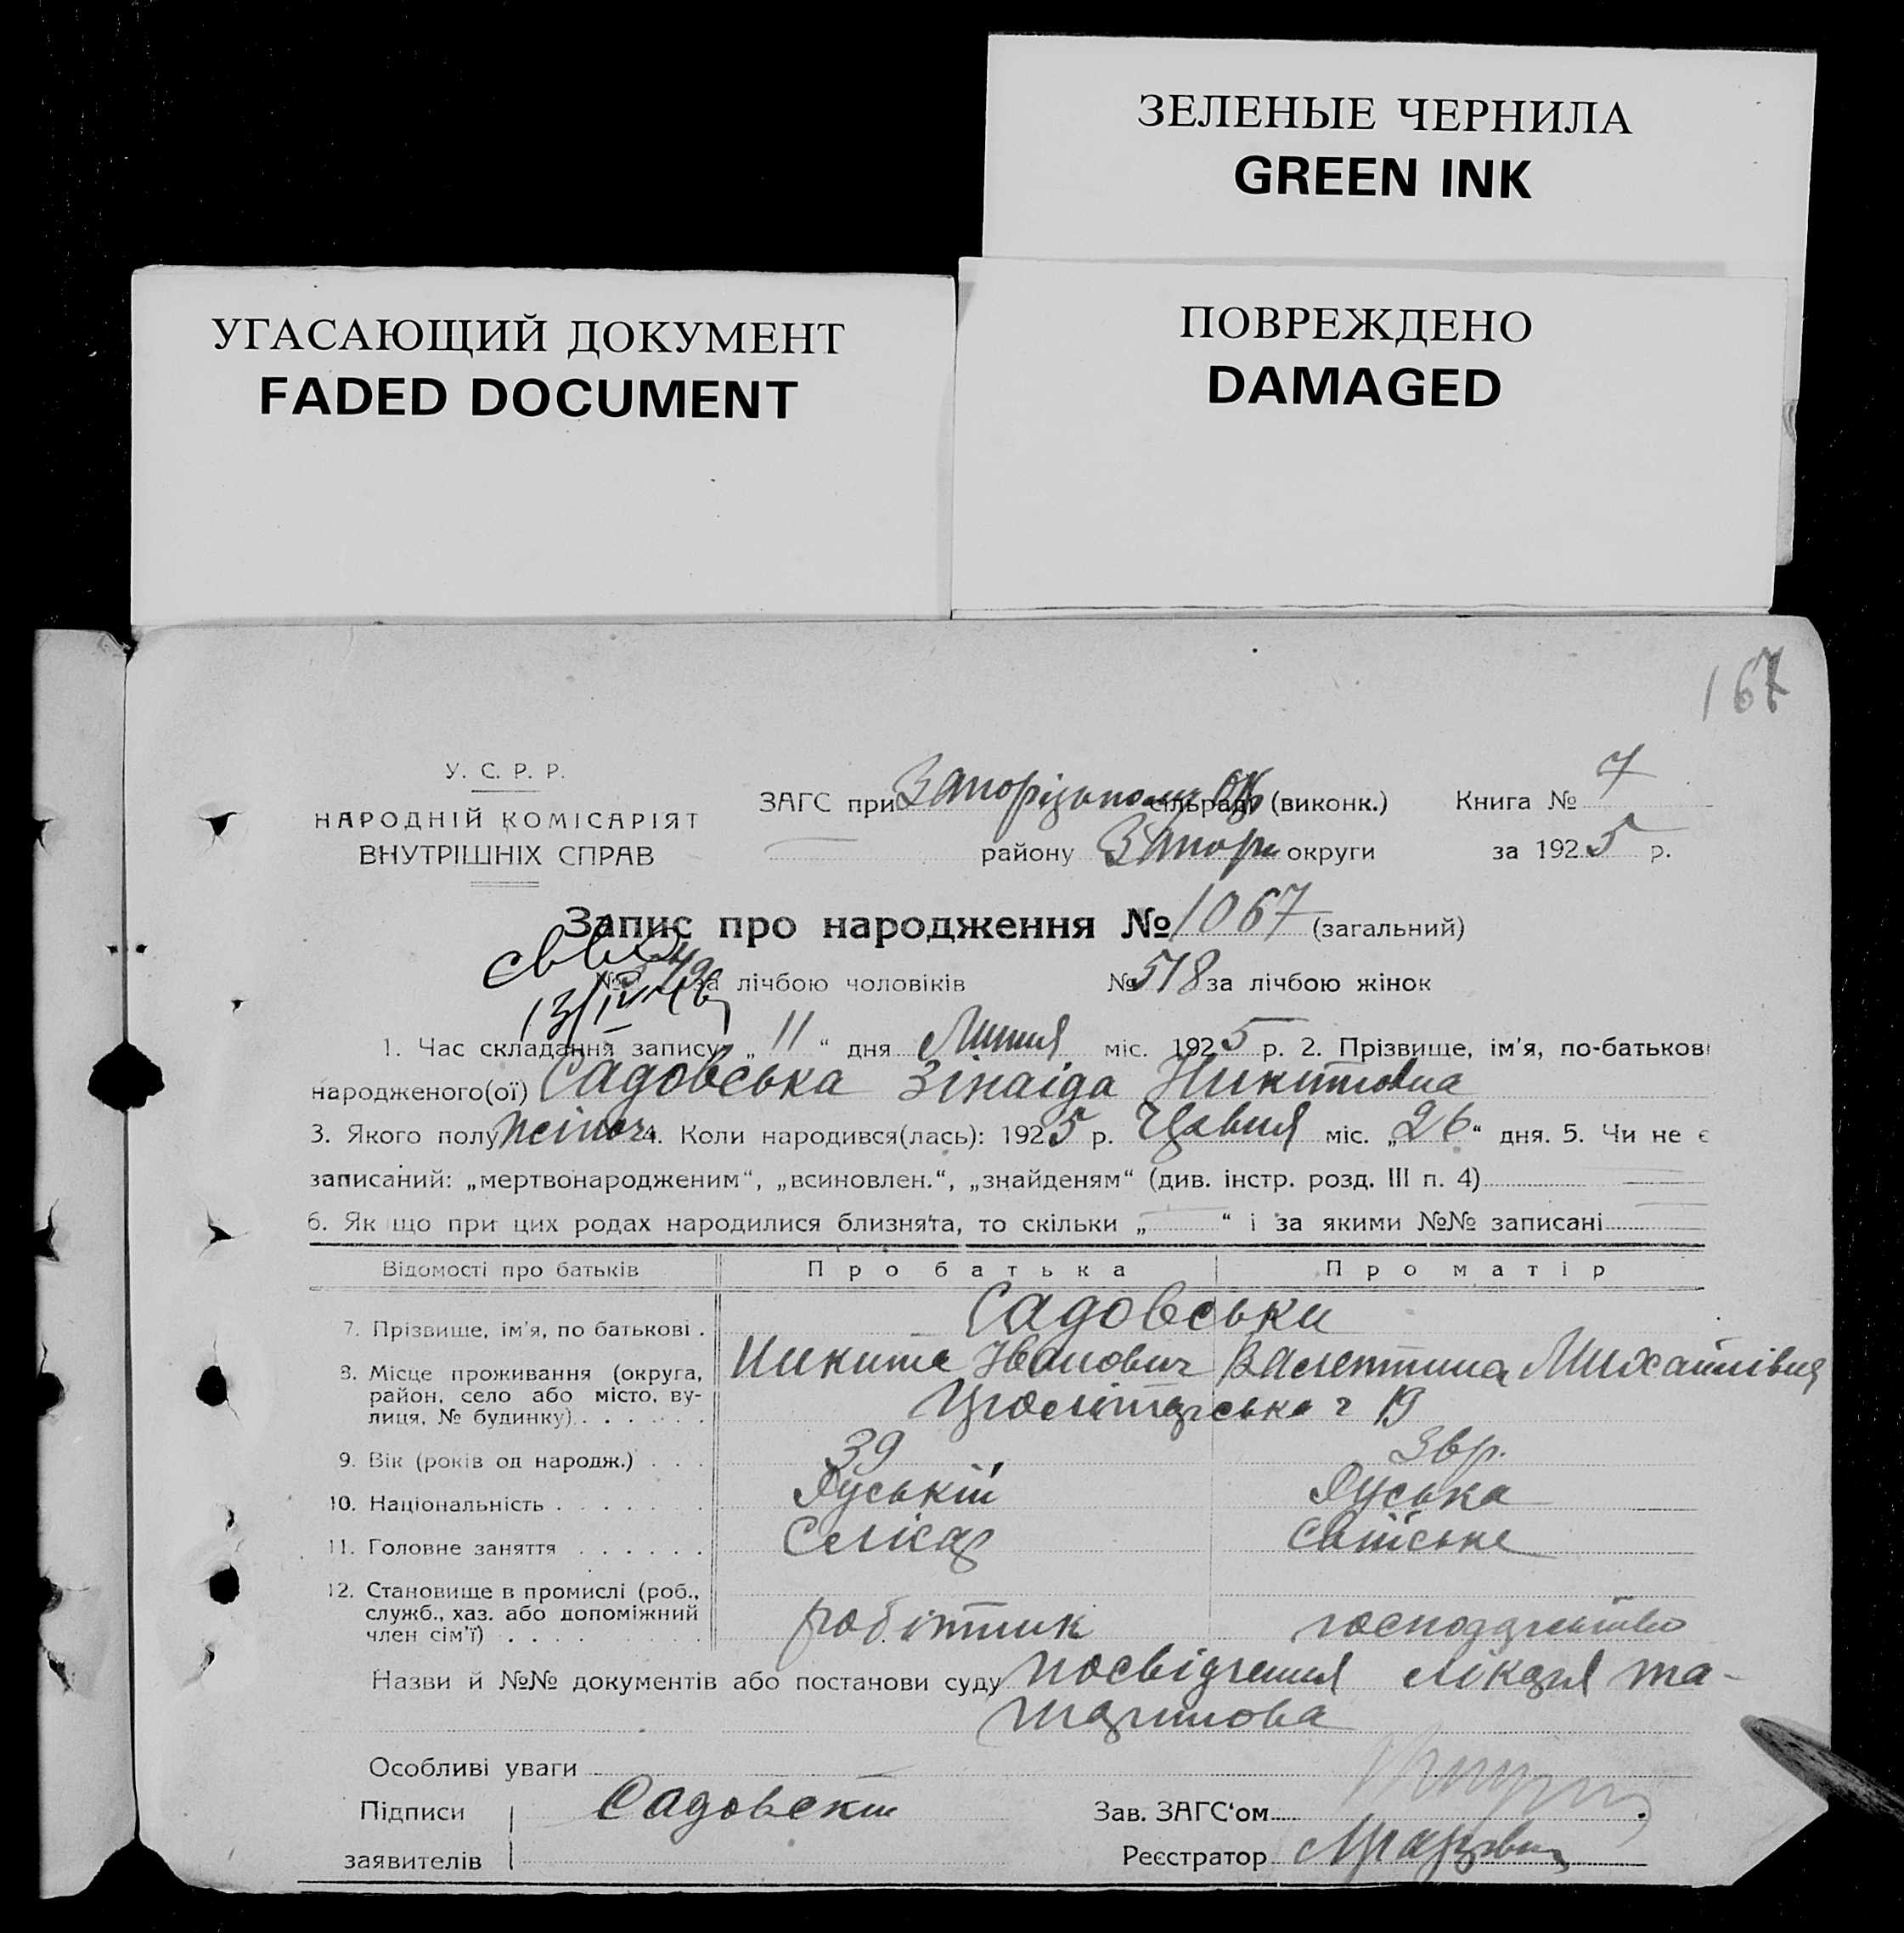 ЗЕЛЕНЫЕ ЧЕРНИЛА
GREEN INK
УГАСАЮЩИЙ ДОКУМЕНТ
FADED DOCUMENT
ПОВРЕЖДЕНО
DAMAGED
167
У. С. Р. Р.
НАРОДНІЙ КОМІСАРІЯТ
ВНУТРІШНІХ СПРАВ
ЗАГС при Запорізькому сільраді (виконк.) Книга № 7
району Запор округи за 1925 р.
Запис про народження № 1067 (загальний)
№ за лічбою чоловіків № 518 за лічбою жінок
13/IV 46
1. Час складання запису „ 11 “ дня Липня міс. 1925 р. 2. Прізвище, ім'я, по-батькові
народженого(ої) Садовська Зінаіда Никитовна
3. Якого полу жіноч. 4. Коли народився(лась): 1925 р. Червня міс. „26“ дня. 5. Чи не є
записаний: „мертвонародженим“, „всиновлен.“, „знайденям“ (див. інстр. розд. III п. 4)
6. Як що при цих родах народилися близнята, то скільки „ “ і за якими №№ записані
Відомості про батьків Про батька Про матір
7. Прізвище, ім'я, по батькові . Садовськи
Никита Іванович Валентина Михайлівна
8. Місце проживання (округа,
район, село або місто, ву-
лиця, № будинку) . . . . . . Пролітарська 19
9. Вік (років од народж.) . . . 39 36р.
10. Національність . . . . . . . Руській Руська
11. Головне заняття . . . . . . Слісар Хатнське
12. Становище в промислі (роб.,
служб., хаз. або допоміжний
член сім'ї) . . . . робітник господарство
Назви й №№ документів або постанови суду посвідчення лікаря
Особливі уваги
Підписи Садовскій Зав. ЗАГС'ом
заявителів Реєстратор